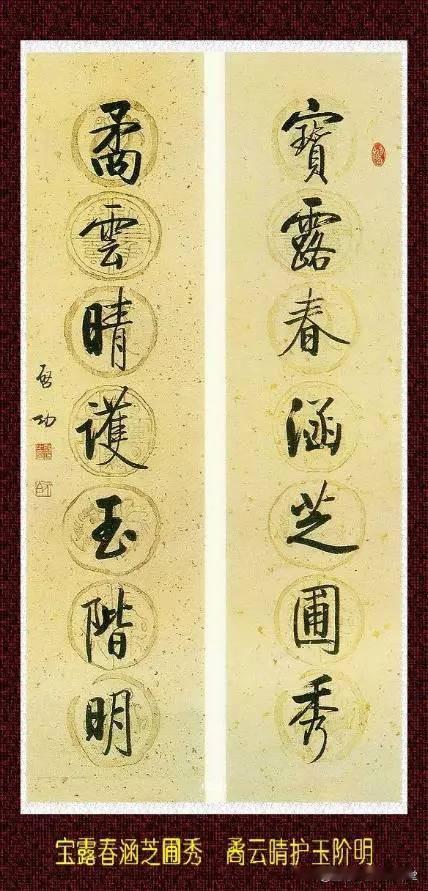 寶露春涵芝圃秀
矞雲晴護玉階明
启功
宝露春涵芝圃秀 矞云晴护玉阶明